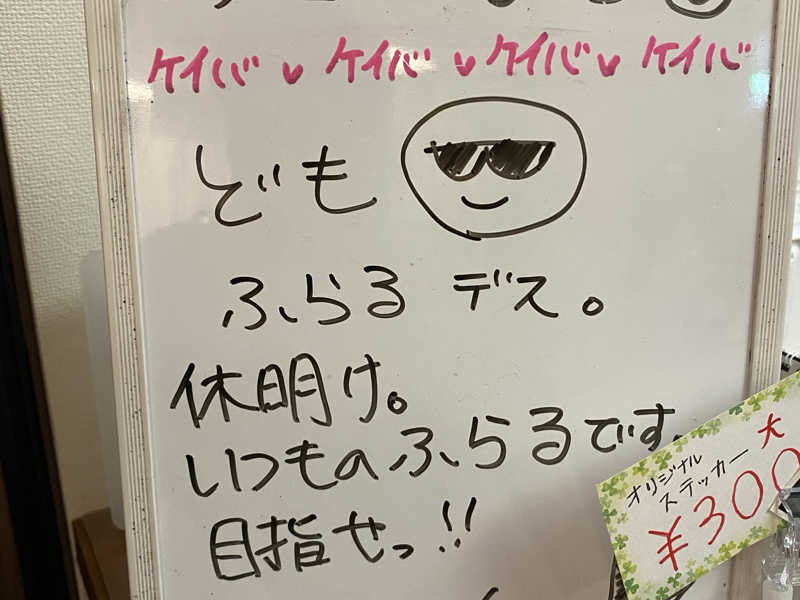 ケイバ♥ケイバ♥ケイバ♥ケイバ
ども
ふらるデス。
休明け。
いつものふらるです。
目指せっ!!
オリジナル
ステッカー大
¥300